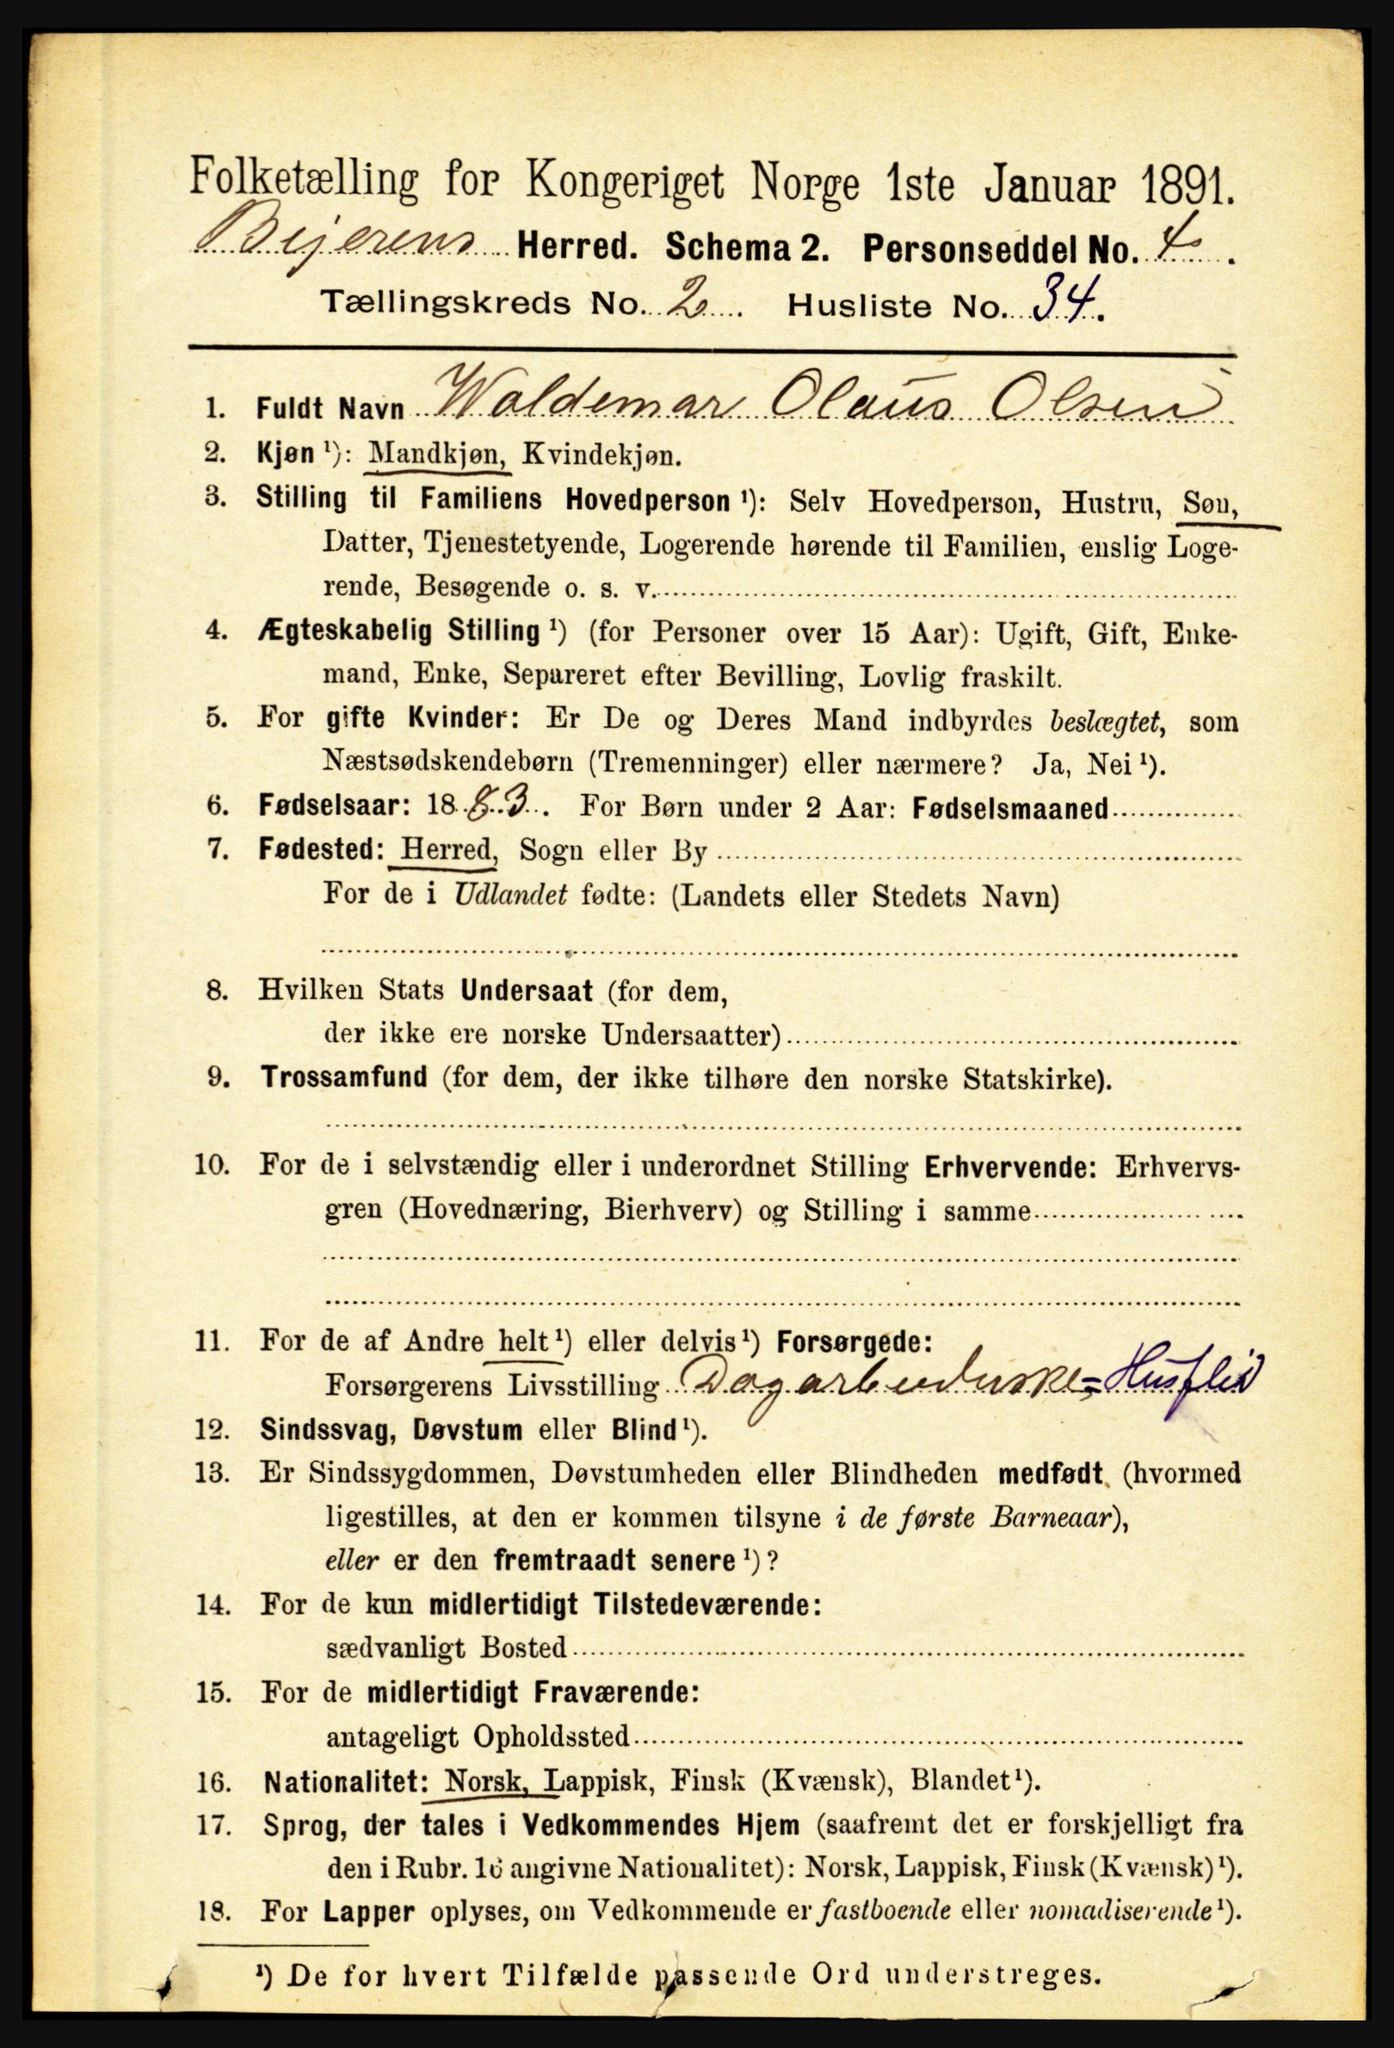 Folketælling for Kongeriget Norge 1ste Januar 1891.
Bejerens Herred. Schema 2. Personseddel No. 4.
Tællingskreds No. 2. Husliste No. 34.
1. Fuldt Navn Waldemar Olaus Olsen
2. Kjøn ¹): Mandkjøn, Kvindekjøn.
3. Stilling til Familiens Hovedperson ¹): Selv Hovedperson, Hustru, Søn,
Datter, Tjenestetyende, Logerende hørende til Familien, enslig Loge-
rende, Besøgende o. s. v.
4. Ægteskabelig Stilling ¹) (for Personer over 15 Aar): Ugift, Gift, Enke-
mand, Enke, Separeret efter Bevilling, Lovlig fraskilt.
5. For gifte Kvinder: Er De og Deres Mand indbyrdes beslægtet, som
Næstsødskendebørn (Tremenninger) eller nærmere? Ja, Nei ¹).
6. Fødselsaar: 1883. For Børn under 2 Aar: Fødselsmaaned
7. Fødested: Herred, Sogn eller By
For de i Udlandet fødte: (Landets eller Stedets Navn)
8. Hvilken Stats Undersaat (for dem,
der ikke ere norske Undersaatter)
9. Trossamfund (for dem, der ikke tilhøre den norske Statskirke).
10. For de i selvstændig eller i underordnet Stilling Erhvervende: Erhvervs-
gren (Hovednæring, Bierhverv) og Stilling i samme
11. For de af Andre helt ¹) eller delvis ¹) Forsørgede:
Forsørgerens Livsstilling Dagarbeiderske = Husflid
12. Sindssvag, Døvstum eller Blind ¹).
13. Er Sindssygdommen, Døvstumheden eller Blindheden medfødt (hvormed
ligestilles, at den er kommen tilsyne i de første Barneaar),
eller er den fremtraadt senere ¹)?
14. For de kun midlertidigt Tilstedeværende:
sædvanligt Bosted
15. For de midlertidigt Fraværende:
antageligt Opholdssted
16. Nationalitet: Norsk, Lappisk, Finsk (Kvænsk), Blandet ¹).
17. Sprog, der tales i Vedkommendes Hjem (saafremt det er forskjelligt fra
den i Rubr. 16 angivne Nationalitet): Norsk, Lappisk, Finsk (Kvænsk) ¹).
18. For Lapper oplyses, om Vedkommende er fastboende eller nomadiserende ¹).
¹) De for hvert Tilfælde passende Ord understreges.